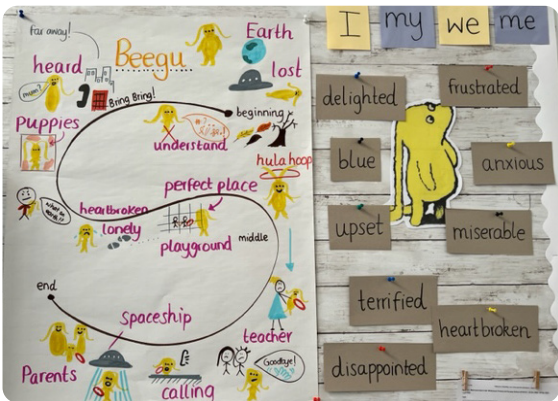 far away!
Beegu
Earth
heard
lost
Bring Bring!
beginning
Puppies
understand
hula hoop
perfect place
heartbroken
lonely
playground
middle
end
spaceship
teacher
Parents
Goodbye!
calling
I my we me
delighted
frustrated
blue
anxious
upset
miserable
terrified
heartbroken
disappointed